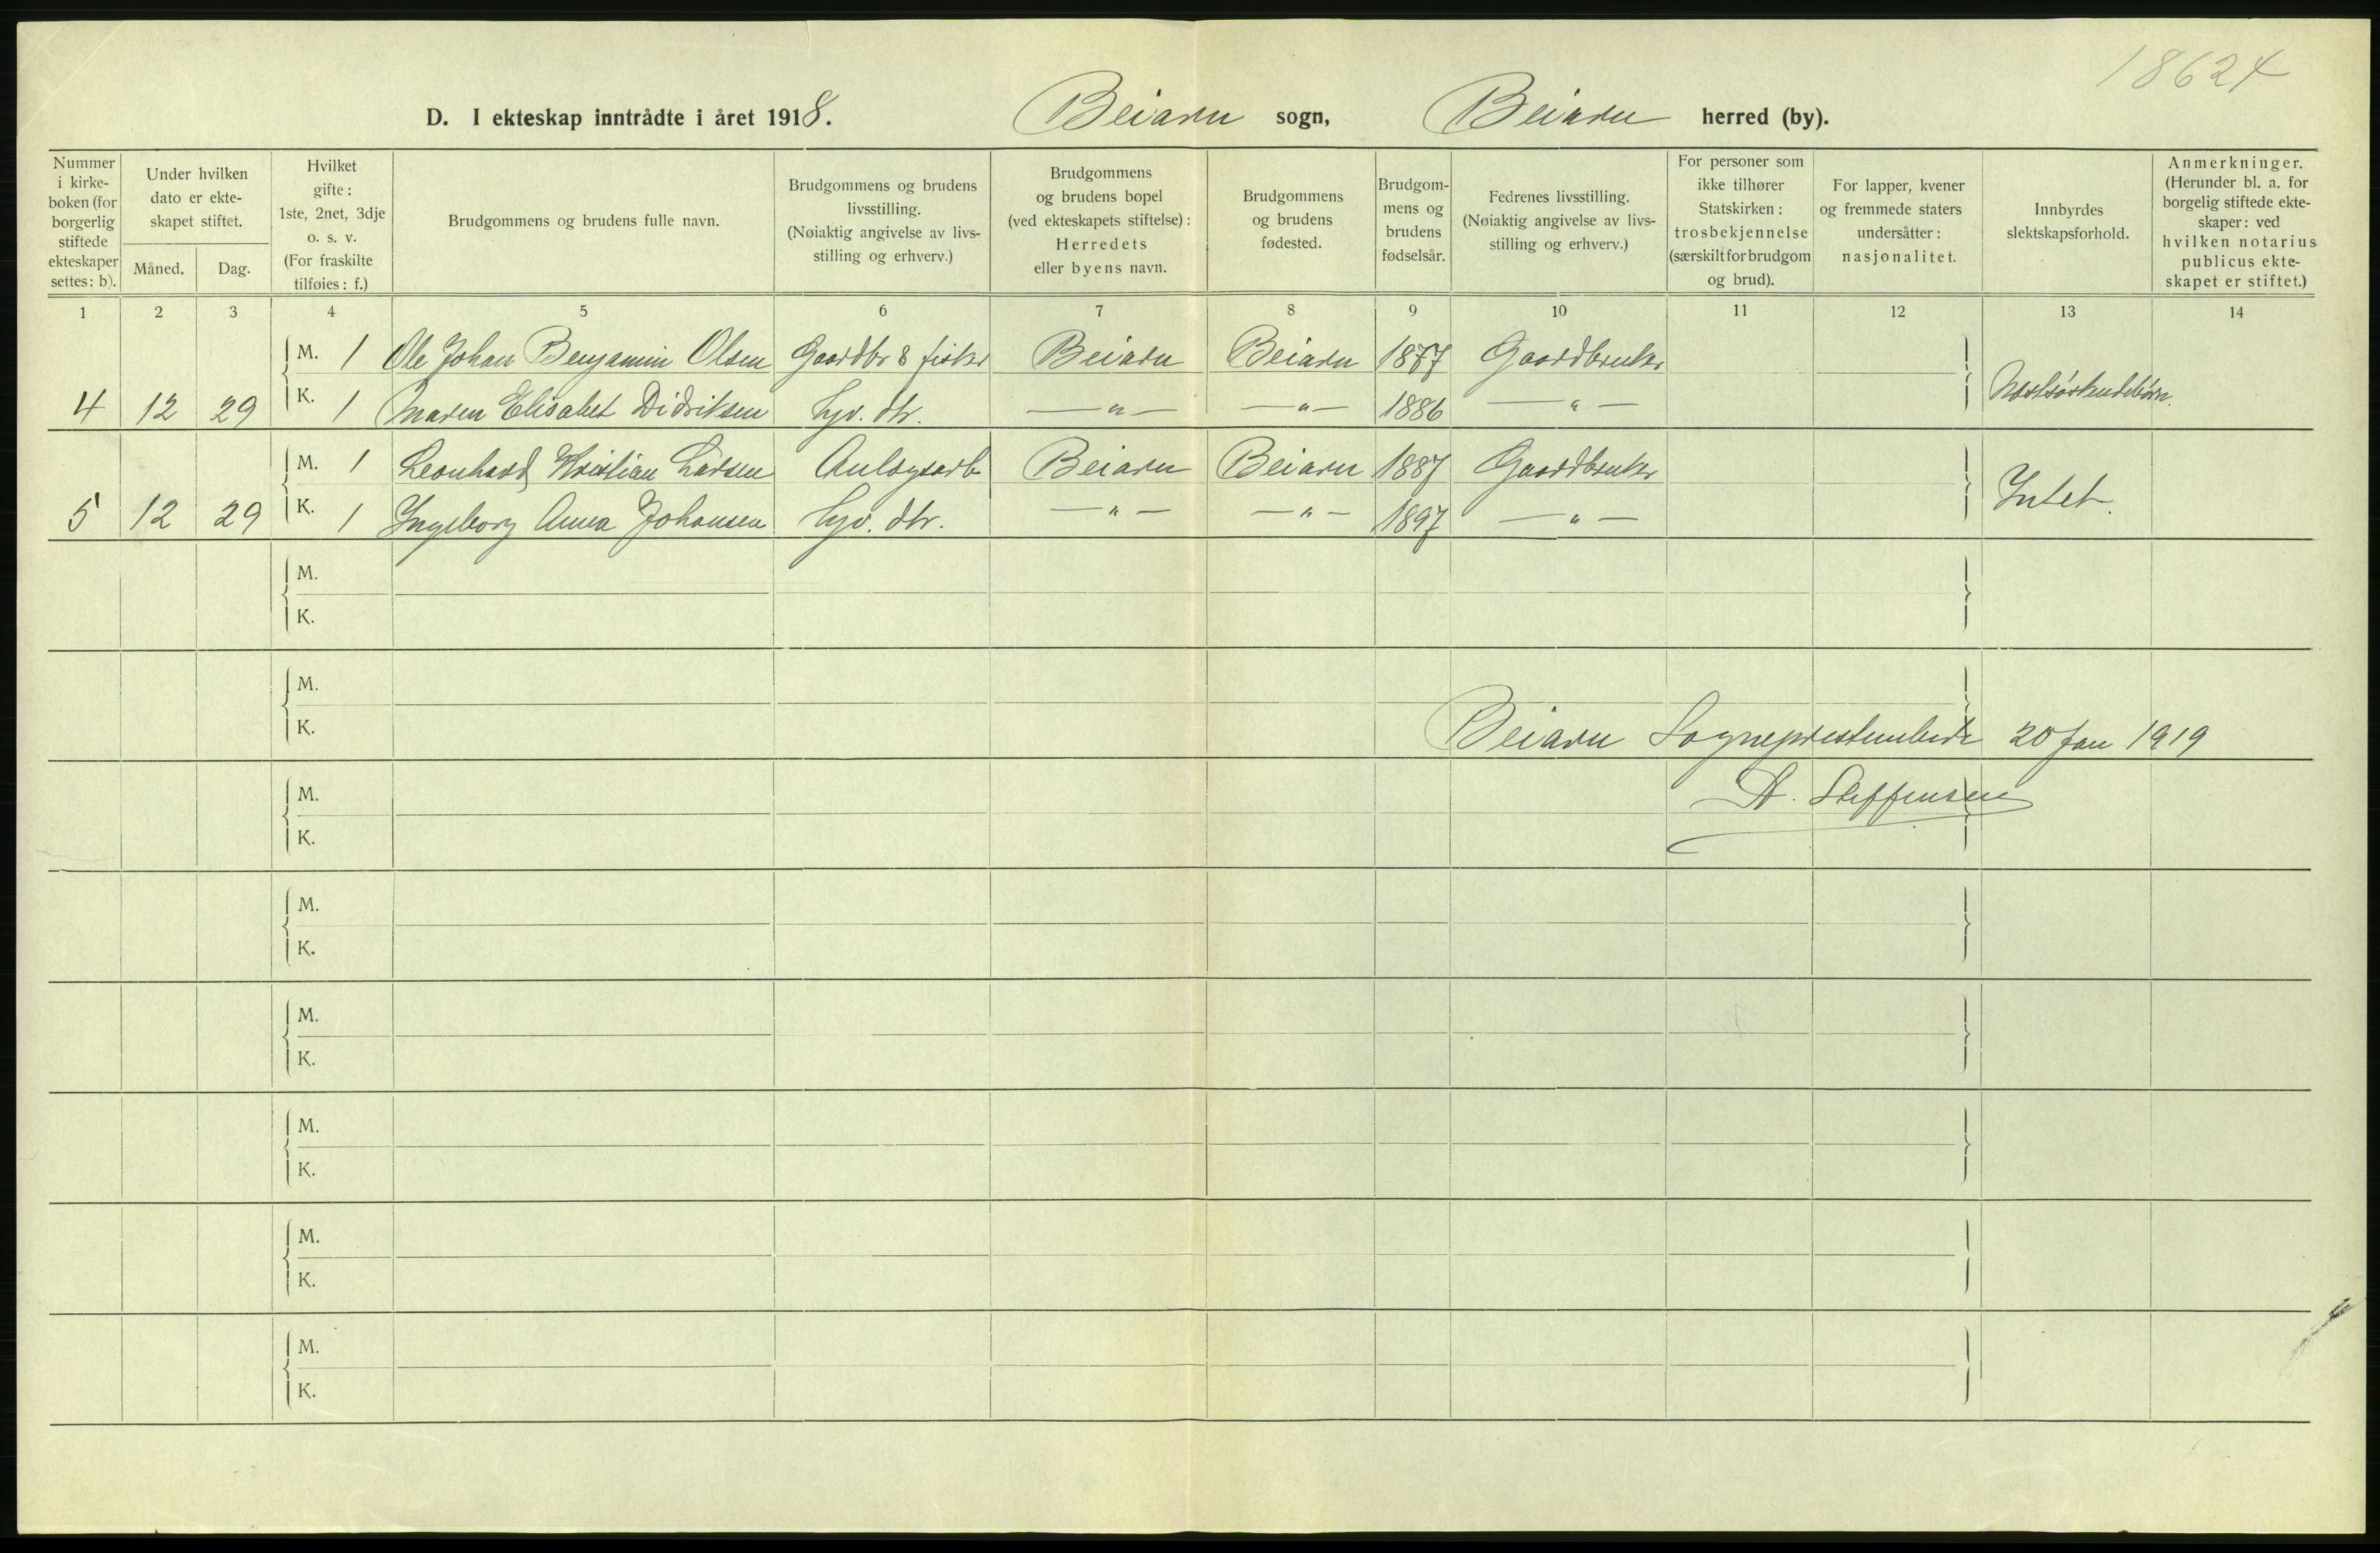 18624
D. I ekteskap inntrådte i året 1918. Beiarn sogn, Beiarn herred (by).
Nummer i kirke- boken (for borgerlig stiftede ekteskaper settes: b).
Under hvilken dato er ekte- skapet stiftet.
Måned. Dag.
Hvilket gifte: 1ste, 2net, 3dje o. s. v. (For fraskilte tilføies: f.)
Brudgommens og brudens fulle navn.
Brudgommens og brudens livsstilling. (Nøiaktig angivelse av livs- stilling og erhverv.)
Brudgommens og brudens bopel (ved ekteskapets stiftelse): Herredets eller byens navn.
Brudgommens og brudens fødested.
Brudgom- mens og brudens fødselsår.
Fedrenes livsstilling. (Nøiaktig angivelse av livs- stilling og erhverv.)
For personer som ikke tilhører Statskirken: trosbekjennelse (særskilt for brudgom og brud).
For lapper, kvener og fremmede staters undersåtter: nasjonalitet.
Innbyrdes slektskapsforhold.
Anmerkninger. (Herunder bl. a. for borgelig stiftede ekte- skaper: ved hvilken notarius publicus ekte- skapet er stiftet.)
1 2 3 4 5 6 7 8 9 10 11 12 13 14
M. 1 Ole Johan Benjamin Olsen Gaardbr & fisker Beiarn Beiarn 1877 Gaardbruker
4 12 29 K. 1 Maren Elisabet Didriksen hjv. dtr. — " — — " — 1886 — " — Næstsøskendebørn.
M. 1 Leonhard Kristian Larsen Anlægsarb Beiarn Beiarn 1887 Gaardbruker
5 12 29 K. 1 Ingeborg Anna Johansen hjv. dtr. — " — — " — 1897 — " — Intet.
M.
K.
M.
K.
Beiarn Sogneprestembede 20 Jan 1919
M.
A. Steffensen
K.
M.
K.
M.
K.
M.
K.
M.
K.
M.
K.